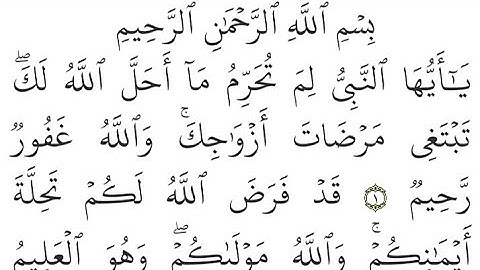 بِسۡمِ ٱللَّهِ ٱلرَّحۡمَٰنِ ٱلرَّحِيمِ
يَـٰٓأَيُّهَا ٱلنَّبِيُّ لِمَ تُحَرِّمُ مَآ أَحَلَّ ٱللَّهُ لَكَۖ
تَبۡتَغِي مَرۡضَاتَ أَزۡوَٰجِكَۚ وَٱللَّهُ غَفُورٞ
رَّحِيمٞ ١ قَدۡ فَرَضَ ٱللَّهُ لَكُمۡ تَحِلَّةَ
أَيۡمَٰنِكُمۡۚ وَٱللَّهُ مَوۡلَىٰكُمۡۖ وَهُوَ ٱلۡعَلِيمُ